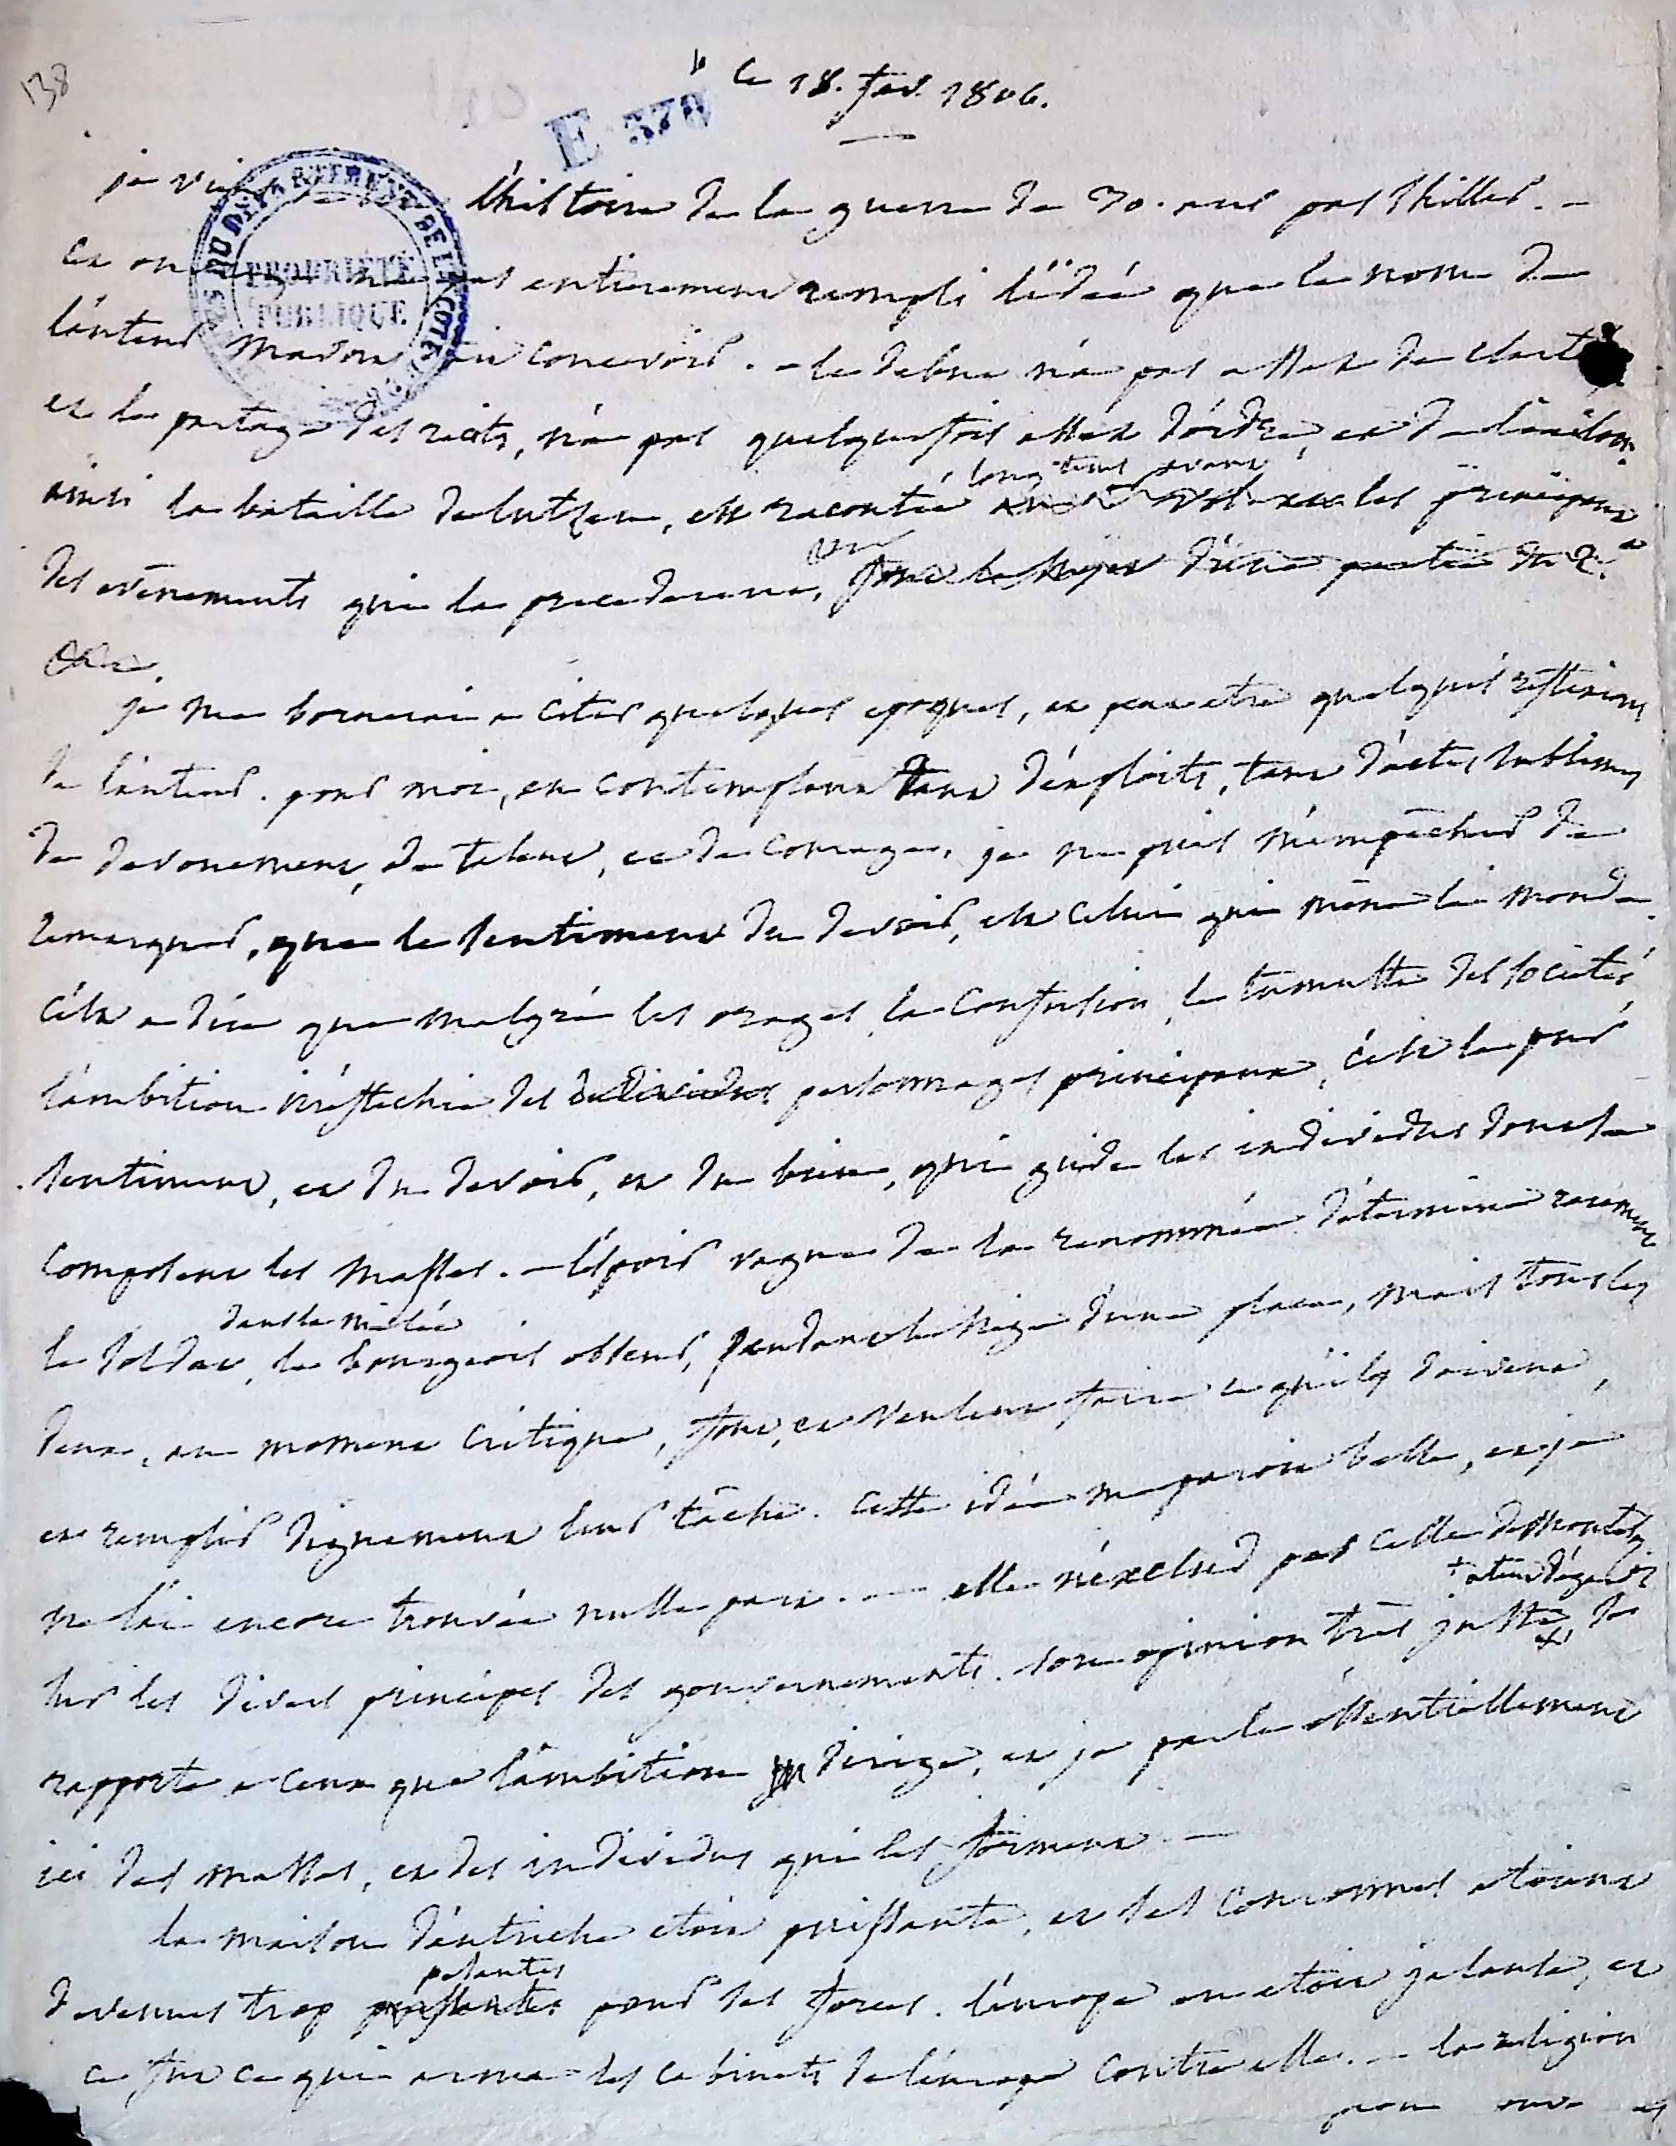 138
le 18. fév. 1806.
E 378
DU DÉPARTEMENT DE LA COTE
PROPRIÉTÉ
PUBLIQUE
je viens de lire l'histoire de la guerre de 30. ans par Shiller. –
cet ouvrage n'a pas entierement rempli l'idée que le nom de
l'auteur m'avoit fait concevoir. – le debut n'a pas assez de clarté
et le partage des recits, n'a pas quelquefois assez d'ordre, et de liaison.
ainsi la bataille de lutzen, est racontée
long tems avant
les principaux
des evènements qui la precederent, font le sujet d'une partie du 2.e
je me bornerai a citer quelques epoques, et peut etre quelques reflexions
de l'auteur. pour moi, en contemplant tant d'exploits, tant d'actes sublimes
de devouement, de talent, et de courage, je ne puis m'empêcher de
remarquer, que le sentiment du devoir, est celui qui mène le monde.
c'est a dire que malgré les orages, la confusion, le tumulte des sociétés,
l'ambition irréflechie des individus personnages principaux, c'est le pur
sentiment, et du devoir, et du bien, qui guide les individus dont se
composent les masses. – l'espoir vague de la renommée détermine rarement
dans la mêlée
le soldat, le bourgeois obscur, pendant le siege d'une place, mais tous les
deux, au moment critique, font, et veulent faire ce qu'ils doivent,
et remplir dignement leur tâche. cette idée me paroit belle, et je
ne l'ai encore trouvée nulle part. – elle n'exclud pas celle de Montesq.
sur les divers principes des gouvernements. son opinion très juste
a tous égards
se
rapporte a ceux que l'ambition dirige, et je parle essentiellement
ici des masses, et des individus qui les forment. –
la maison d'autriche etoit puissante, et ses couronnes etoient
pesantes
devenues trop puissantes pour ses forces. l'europe en etoit jalouse, et
ce fut ce qui arma les cabinets de l'europe contre elle. – la religion